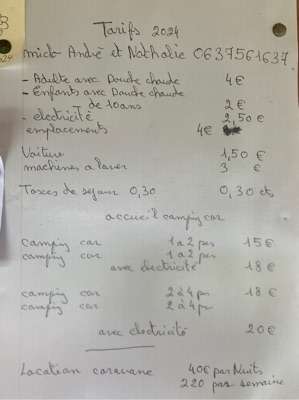 Tarifs 2024
mick André et Nathalie 0637561637
- Adulte avec Douche chaude 4€
- Enfants avec Douche chaude
de 10 ans 2 €
- electricité 2,50 €
emplacements 4€
Voiture 1,50 €
machines a laver 3 €
Taxes de sejour 0,30 0,30 cts
accueil camping car
camping car 1 a 2 pers 15 €
camping car 1 a 2 pers
avec électricité 18 €
camping car 2 à 4 pr 18 €
camping car 2 à 4 pr
avec electricité 20€
Location caravane 40€ par Nuits
220 par semaine